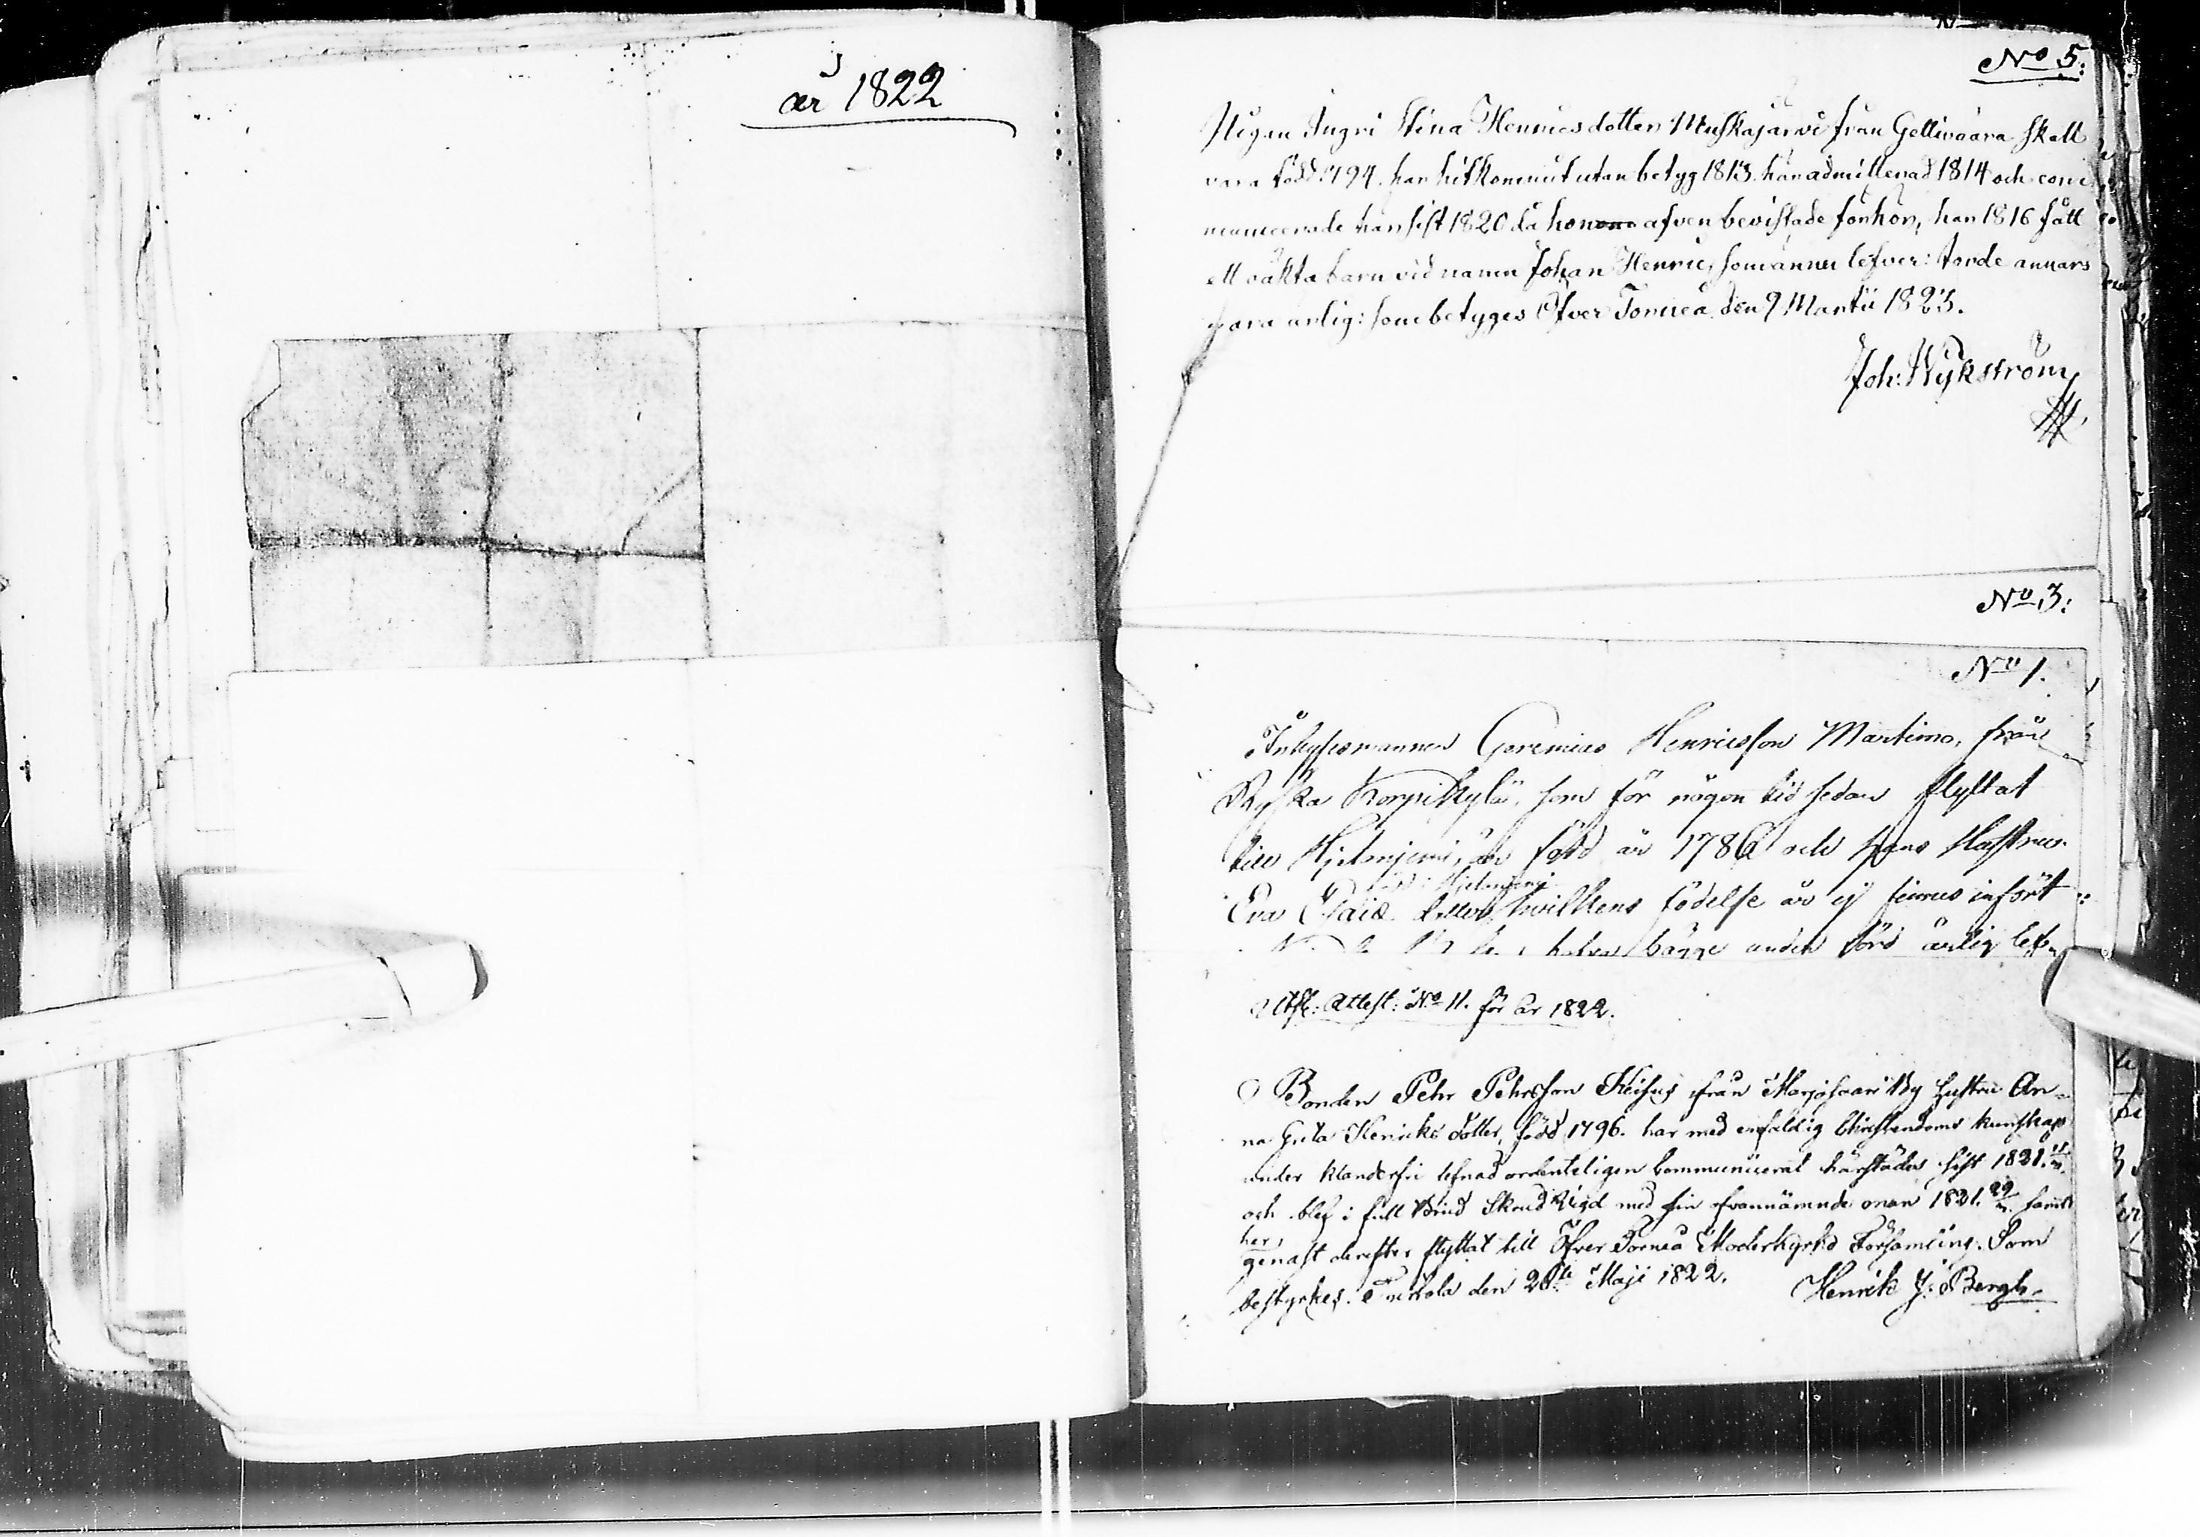 år 1822
No 5:
Pigan Ingri Stina Henricsdotter Muskajärvi från Gellivaara skall
vara född 1794. har hitkommit utan betyg 1813. här admitterad 1814 och com¬
municerade här sist 1820 då hon äfven bevistade förhör, har 1816 fått
ett oäkta barn vid namn Johan Henric, som ännu lefver: torde annars
vara ärlig: som betyges Öfver Torneå den 9 Martii 1823.
Joh: Wykström
No 3:
No 1.
Inhysesmannen Geremias Henricsson Martimo, från
Ryska Korpikylä, som för någon tid sedan flyttat
till Hjetanjemi, är född år 1786 och hans Hustru
född i Hjetanjemi
Eva Esaiæ dotter, hvilkens födelse år ej finnes infört
hafva bägge under förd ärlig lef¬
Afsk: Attest: No 11. för år 1822.
Bonden Pehr Pehrsson Keisus ifrån Marjosaari By hustru An¬
na Greta Henriks dotter, född 1796. har med enfaldig Christendoms kunskap
under klanderfri lefnad ordenteligen kommunicerat härstädes sist 1821.
och blef i full Brud Skrud Vigd med sin ofvannämnde man 1821. samt
her,
genast derefter flyttat till Öfver Torneå Moderkyrko Församling. Som
bestyrkes. Turtola den 28de Maji 1822. Henrik J: Bergh.